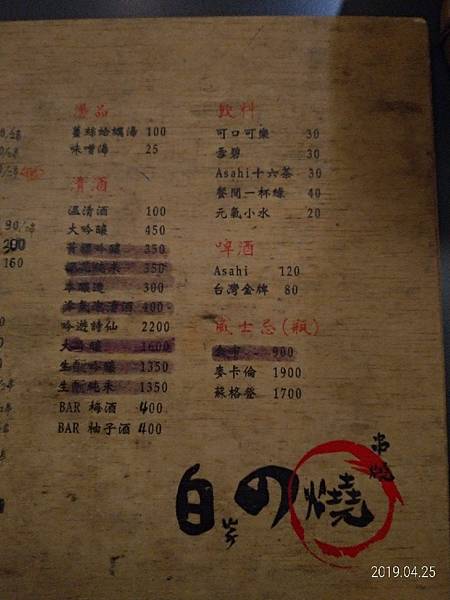 湯品
薑絲蛤蠣湯 100
味噌湯 25
清酒
溫清酒 100
大吟釀 450
吟釀 350
純米 350
本釀造 300
清酒 400
吟遊詩仙 2200
大吟釀 1600
生酛吟釀 1350
生酛純米 1350
BAR 梅酒 400
BAR 柚子酒 400
飲料
可口可樂 30
雪碧 30
Asahi十六茶 30
餐間一杯綠 40
元氣小水 20
啤酒
Asahi 120
台灣金牌 80
威士忌(瓶)
900
麥卡倫 1900
蘇格登 1700
90/串
200
160
白の燒
串燒
2019.04.25